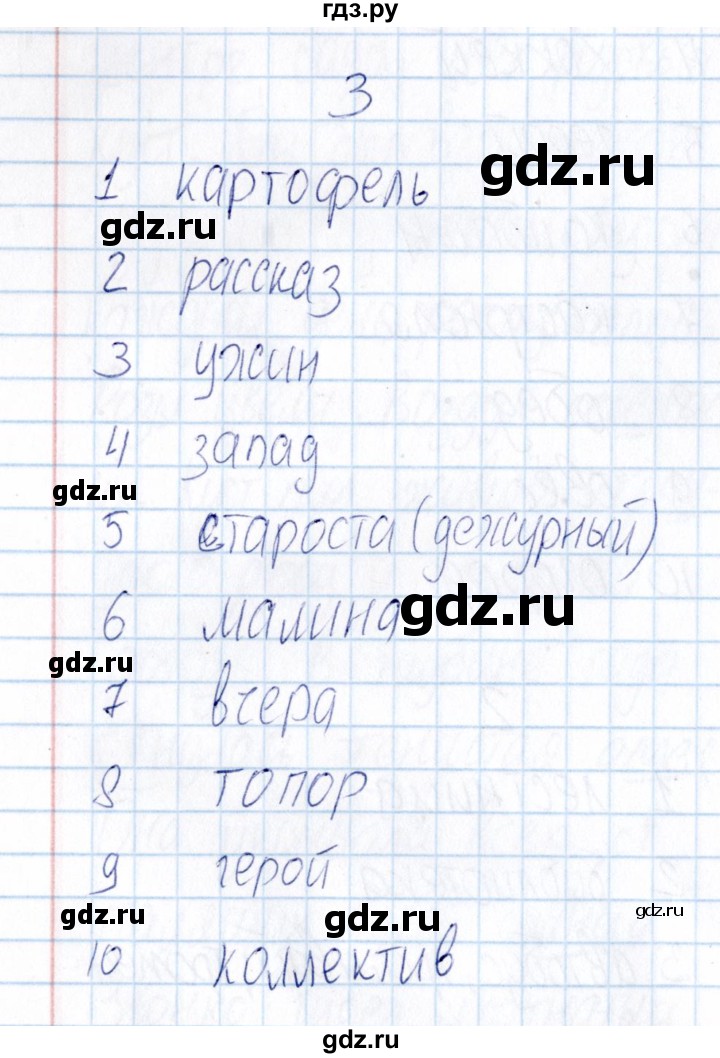 гдз.ру
3
gdz.ru
1 картофель
gdz.ru
2 рассказ
3 ужин
4 запад
gdz.ru
5 староста (дежурный)
6 малина
gdz.ru
gdz.ru
7 вчера
8 топор
9 герой
gdz.ru
gdz.ru
gdz.ru
10 коллектив
gdz.ru